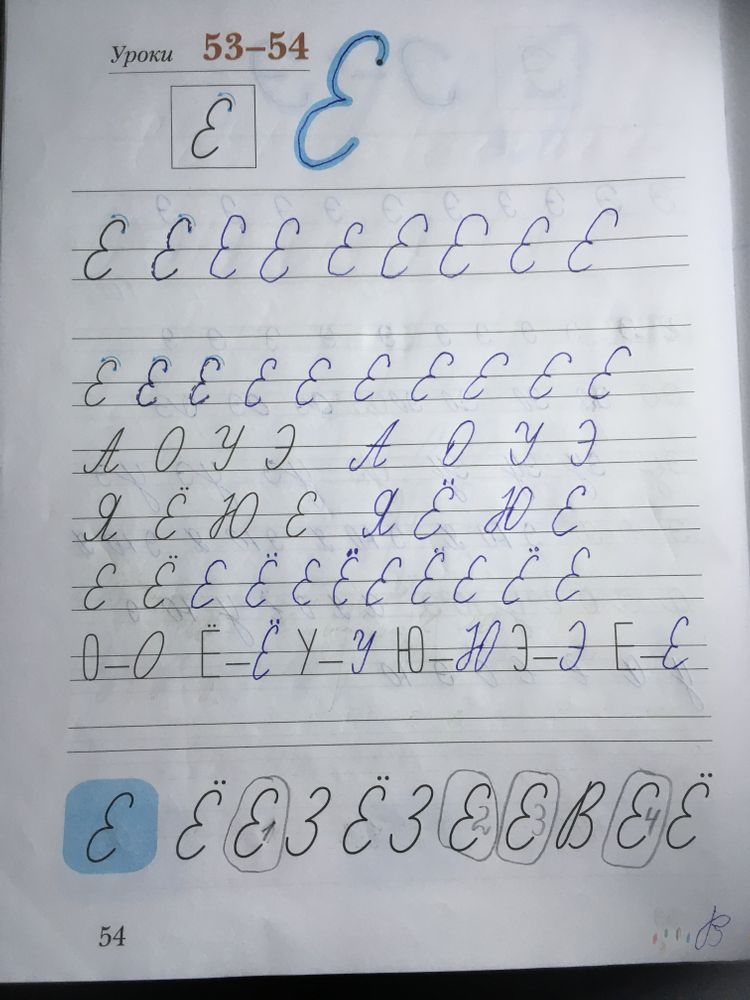 Уроки 53–54
Е
Е
Е Е Е Е Е Е Е Е Е
Е Е Е Е Е Е Е Е Е Е
А О У Э А О У Э
Я Ё Ю Е Я Ё Ю Е
Е Ё Е Ё Е Ё Е Ё Е Ё Е
О–О Ё–Ё У–У Ю–Ю Э–Э Е–Е
Е Ё Е 1 З Ё З Е 2 Е 3 В Е 4 Ё
54